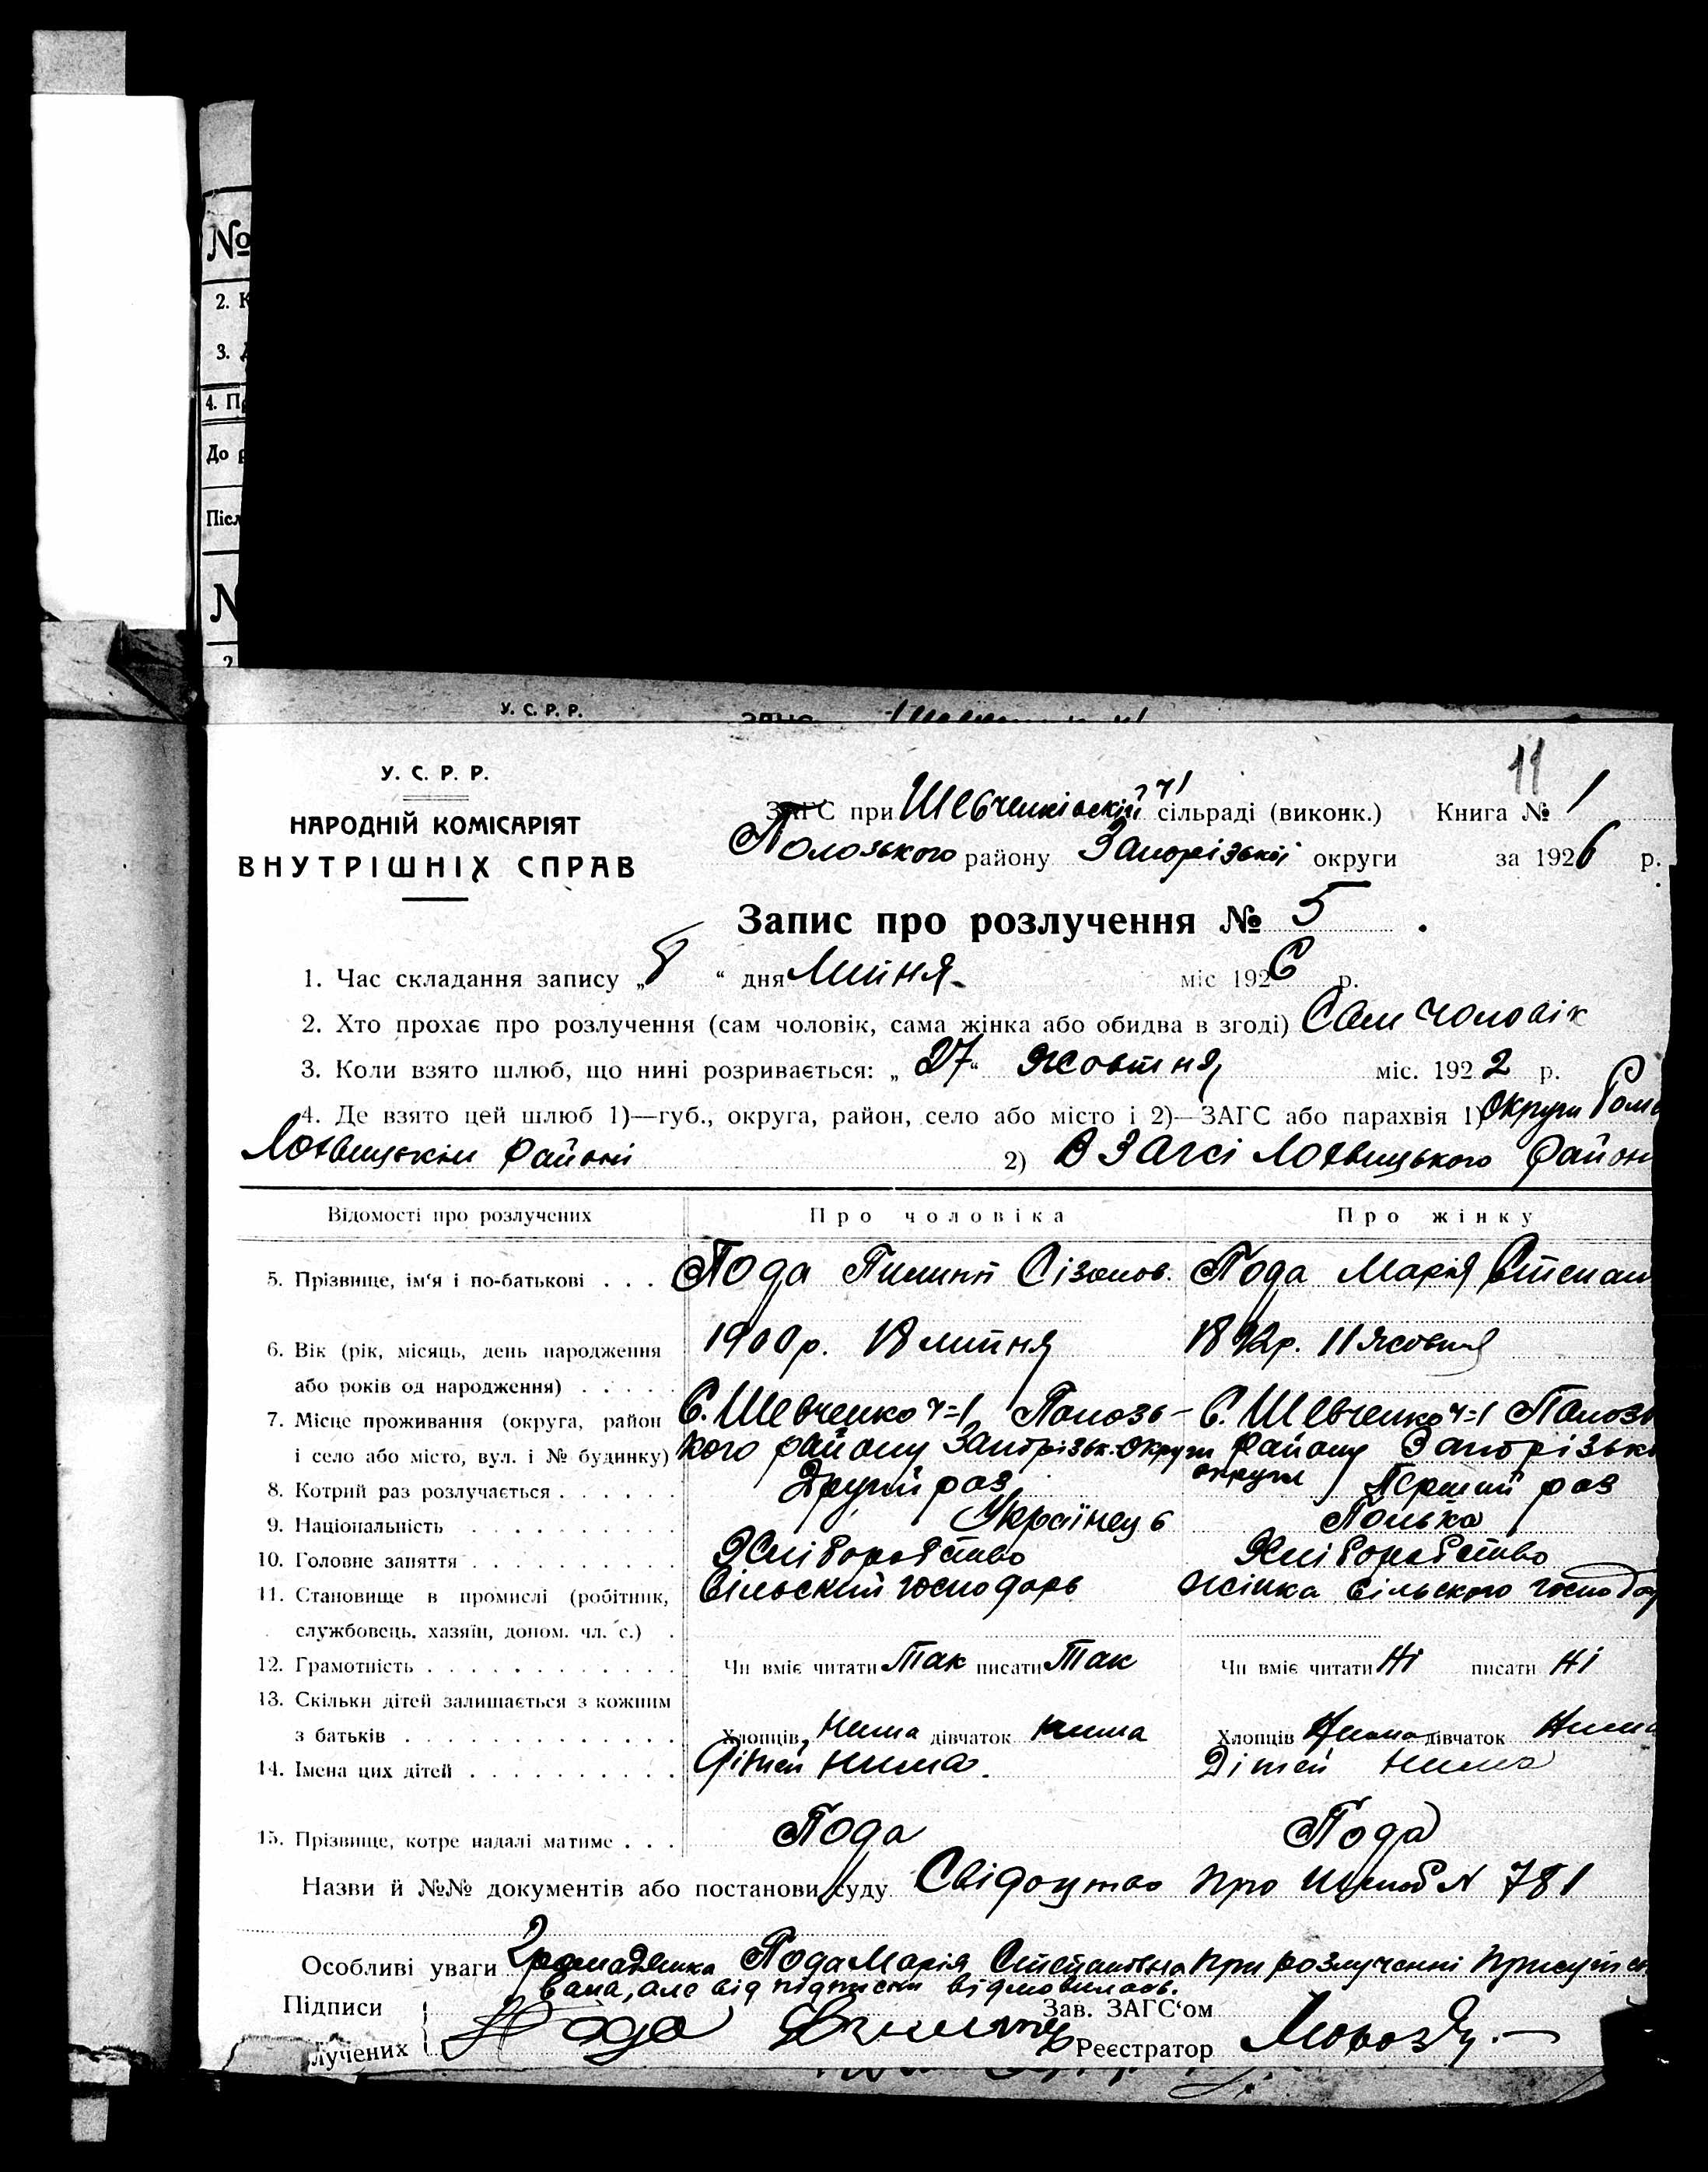 №
2. К
3. Д
4. Пр
До р
Післ
№
2
У. С. Р. Р.
11
У. С. Р. Р.
НАРОДНІЙ КОМІСАРІЯТ
ВНУТРІШНІХ СПРАВ
ЗАГС при Шевченківскій ч1 сільраді (виконк.) Книга № 1
Полозького району Запорізької округи за 1926 р.
Запис про розлучення № 5.
1. Час складання запису „8“ дня Липня міс 1926 р.
2. Хто прохає про розлучення (сам чоловік, сама жінка або обидва в згоді) Сам чоловік
3. Коли взято шлюб, що нині розривається: „27“ Жовтня міс. 1922 р.
4. Де взято цей шлюб 1)—губ., округа, район, село або місто і 2)—ЗАГС або парахвія 1) Округи Ром
Лохвицькім Районі 2) В Загсі Лохвицького Район
Відомості про розлучених Про чоловіка Про жінку
5. Прізвище, ім‘я і по-батькові . . . Пода Пилипп Сізонов. Пода Марія Степан
6. Вік (рік, місяць, день народження 1900р. 18 липня 1892р. 11 жовтня
або років од народження) . . . . .
7. Місце проживання (округа, район С. Шевченко ч=1 Полозь- С. Шевченко ч=1 Полозь
і село або місто, вул. і № будинку) кого району Запорізьк. округи Району Запорізько
округи
8. Котрий раз розлучається . . . . . . Другий раз Перший раз
9. Національність . . . . . . . . . . Українець Полька
10. Головне заняття . . . . . . . . . . Хліборобство Хліборобство
11. Становище в промислі (робітник, Сільский господарь жінка сільского господар
службовець, хазяїн, допом. чл. с.) .
12. Грамотність . . . . . . . . . . . . Чи вміє читати Так писати Так Чи вміє читати Ні писати Ні
13. Скільки дітей залишається з кожним
з батьків . . . . . . . . . . . . . Хлопців Нима дівчаток нима Хлопців Нима дівчаток Нима
14. Імена цих дітей . . . . . . . . . . Дітей нима. Дітей нима
15. Прізвище, котре надалі матиме . . . Пода Пода
Назви й №№ документів або постанови суду Свідоцтво про шлюб N 781
Особливі уваги Громадянка Пода Марія Степановна при розлученні присутст
вала, але від підписки відмовилась.
Підписи Зав. ЗАГС‘ом
лучених Пода Реєстратор